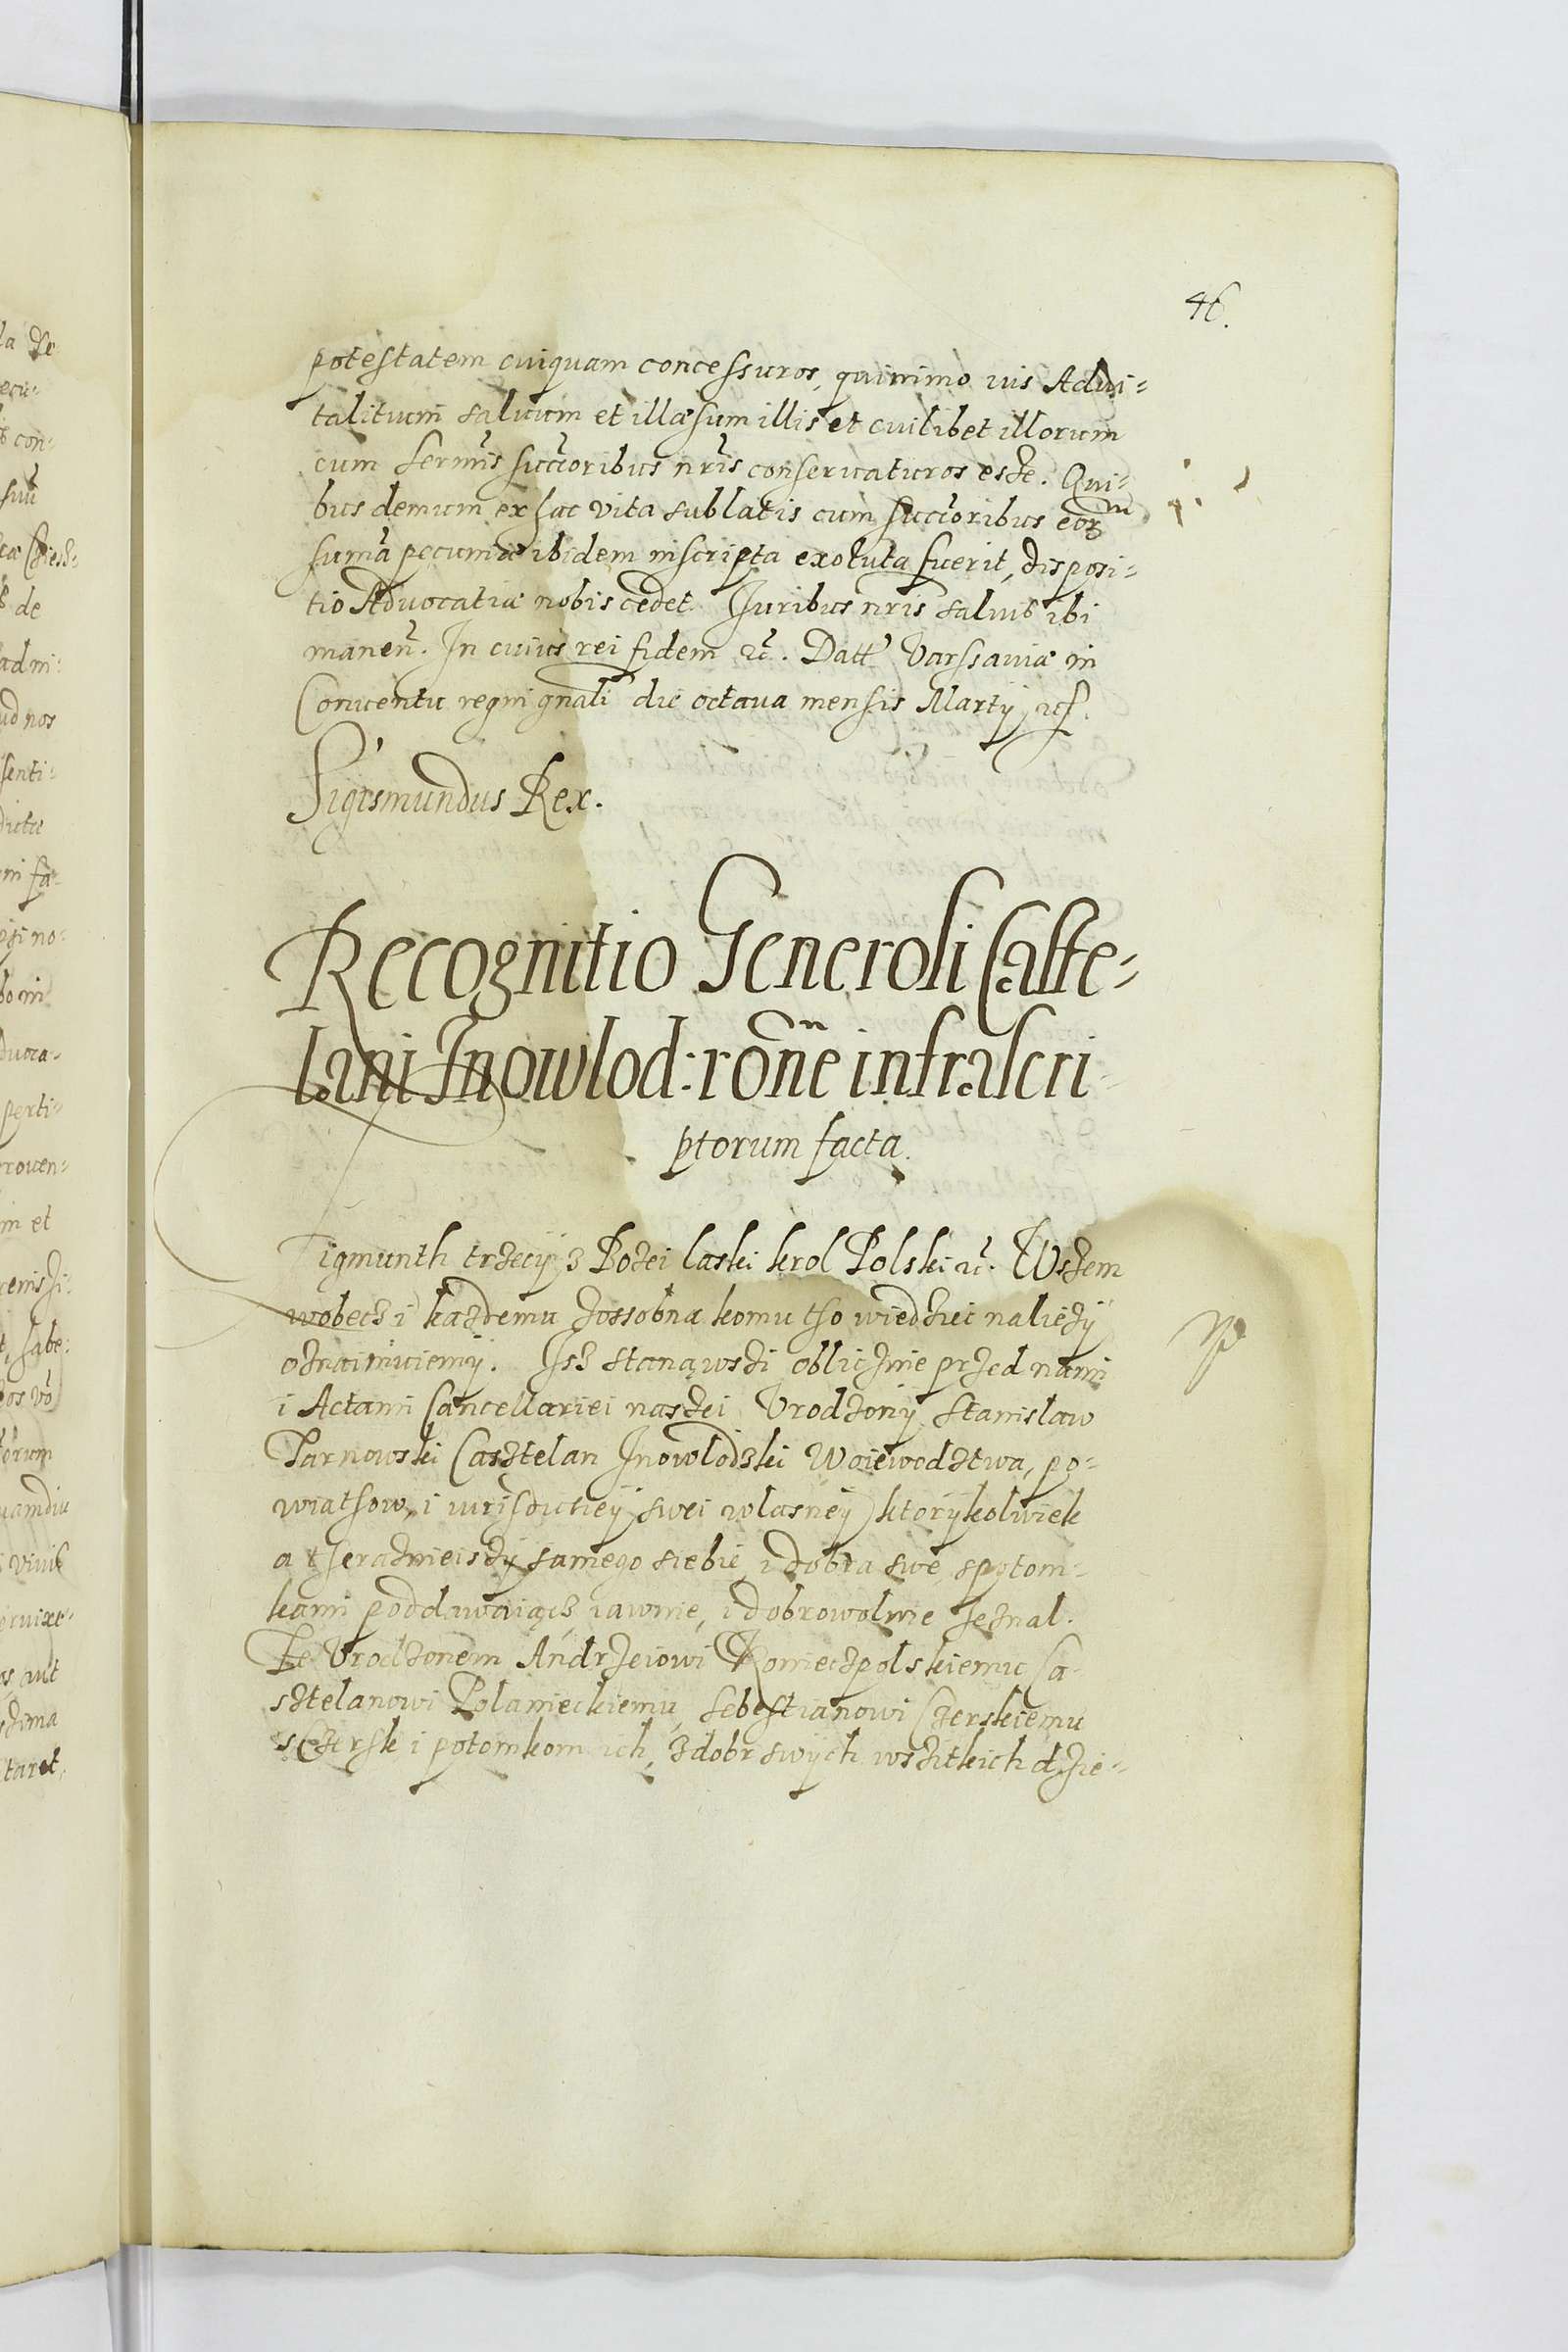 46.
potestatem cuiquam concessuros, quinimo ius Advi-
talitium saluum et illæsum illis et cuilibet illorum
cum sermis succoribus nris conseruaturos esse. Qui-
bus demum ex hac vita sublatis cum succoribus eorum
suma pecuniæ ibidem inscripta exoluta fuerit, disposi-
tio Aduocatiæ nobis cedet. Juribus nris saluis ibi
manen. In cuius rei fidem etc. Datt Varssauiæ in
Conuentu regni gnali die octaua mensis Martij
Sigismundus Rex.
Recognitio Generosi Caste-
lani Inowlod: rone infrascri-
ptorum facta.
Zigmunth trzecÿ z Bozei laski krol Polski etc. Wszem
wobecz i kazdemu zossobna komu tho wiedziec naliezÿ
oznaimuiemÿ. Isz stanąwszi oblicznie przed nami
i Actami Cancellariei naszei Vrodzonÿ Stanislaw
Tarnowski Casztelan Inowlodzki Woiewodztwa, po-
wiathow, i iurisdictieÿ swei wlasneÿ ktorÿkolwiek
a theraznieiszÿ samego siebie, i dobra swe, spotom-
kami poddawaiącz iawnie, i dobrowolnie zeznal.
Ze Vrodzonem Andrzeiowi Konieczpolskiemu Ca-
sztelanowi Polanieckiemu, Sebestianowi Czerskiemu
sCzersk i potomkom ich, z dobr swÿch wszitkich dzie-